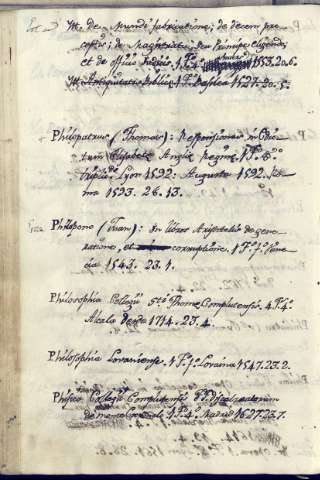 It. de Mundi fabricatione; de decem pre
ceptis; de Magistratu, seu Principe eligendo,
et de officio Iudicis, 1 tº 4º 1553. 20. 6.
It. Antiquitatis Biblicæ, 1 tº Basileæ 1527. 20. 5.
Philopatrus (Thomas): responsiones in Edic
tum Elisabetæ Angliæ reginæ. 1 tº 8º
Lyon 1592: Augustæ 1592. Ro
ma 1593. 26. 13.
Philopono (Juan): In libros Aristotelis de gene
ratione, et corruptione. 1 tº fº Vene
cia 1543. 23. 1.
Philosophia Collegii Sti Thomæ Complutensis. 4 tº 4º
Alcala desde 1714. 23. 4.
Philosophia Lovaniense. 1 tº fº Lovaina 1547. 23. 2.
Phisica Collegii Complutensis Discalceatorum
de monte Carmeli 1 tº 4º Madrid 1627. 23. 7.